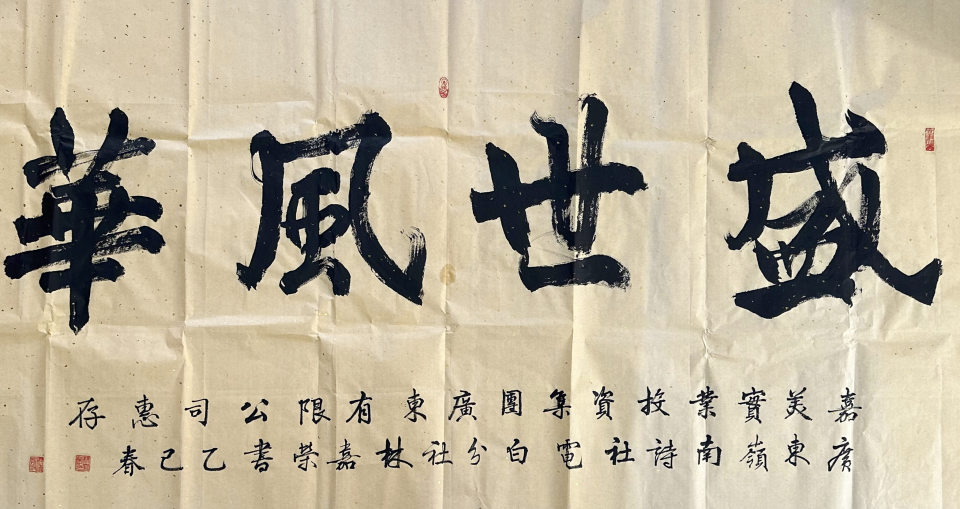 盛世風華
嘉美實業投資集團廣東有限公司惠存
廣東嶺南詩社電白分社林嘉榮書乙巳春